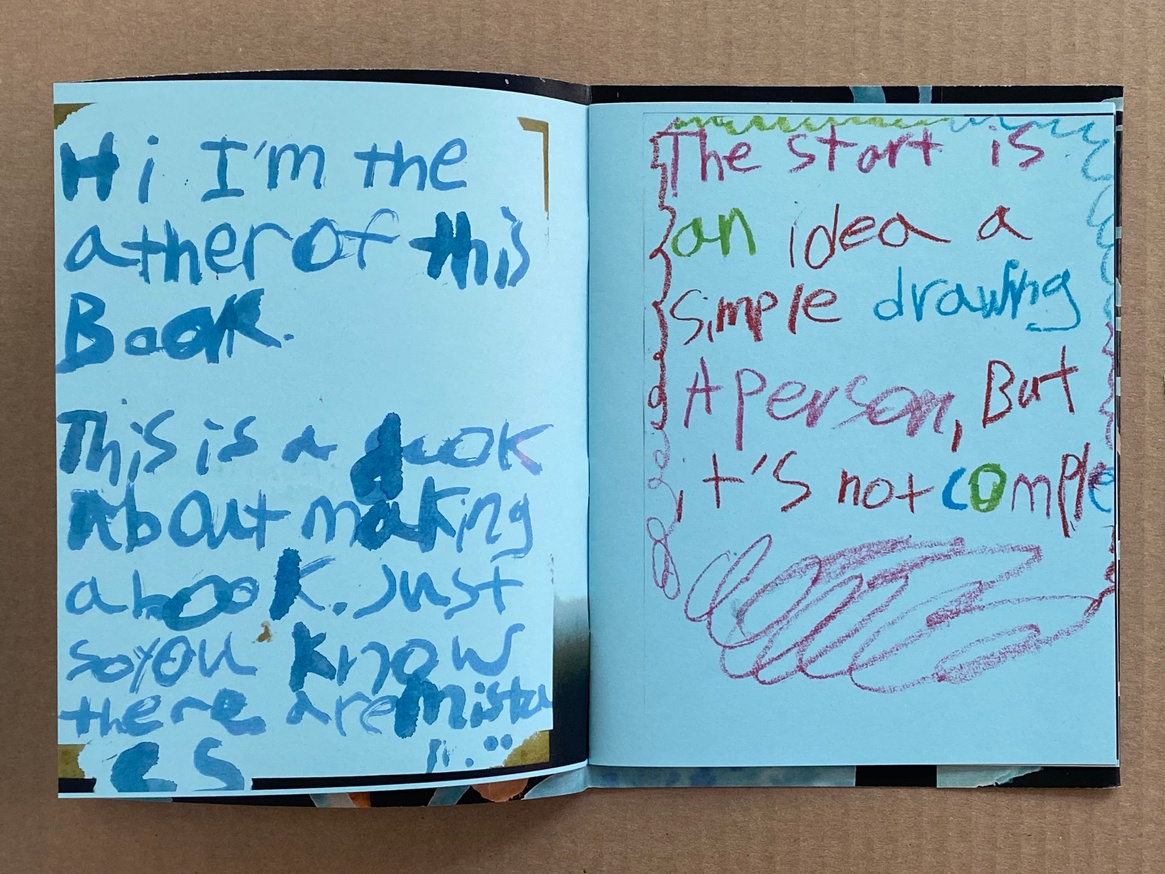 Hi I'm the
ather of this
Book.
This is a book
About making
a book. Just
so you know
there are mista
es
The start is
an idea a
simple drawing
A person, But
it's not comple